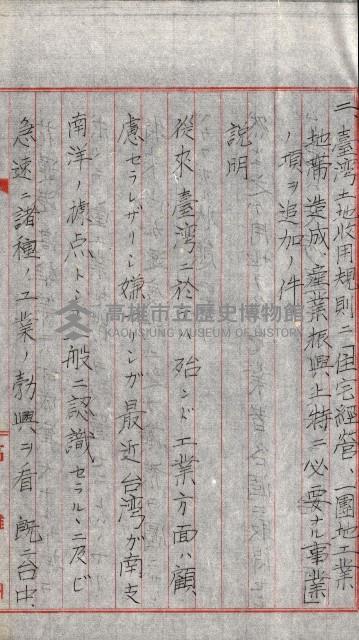 二、臺湾土地收用規則ニ「住宅経營、一團地工業
地帶造成、産業振興上特ニ必要ナル事業」
ノ項ヲ追加ノ件
説明
從來臺湾ニ於 殆ンド工業方面ハ顧
慮セラレザリシ嫌 リシガ最近台湾ガ南支
南洋ノ拠点トシ 一般ニ認識セラルヽニ及ビ
急速ニ諸種ノ工業ノ勃興ヲ看 既ニ台中、
高雄市立歷史博物館
KAOHSIUNG MUSEUM OF HISTORY